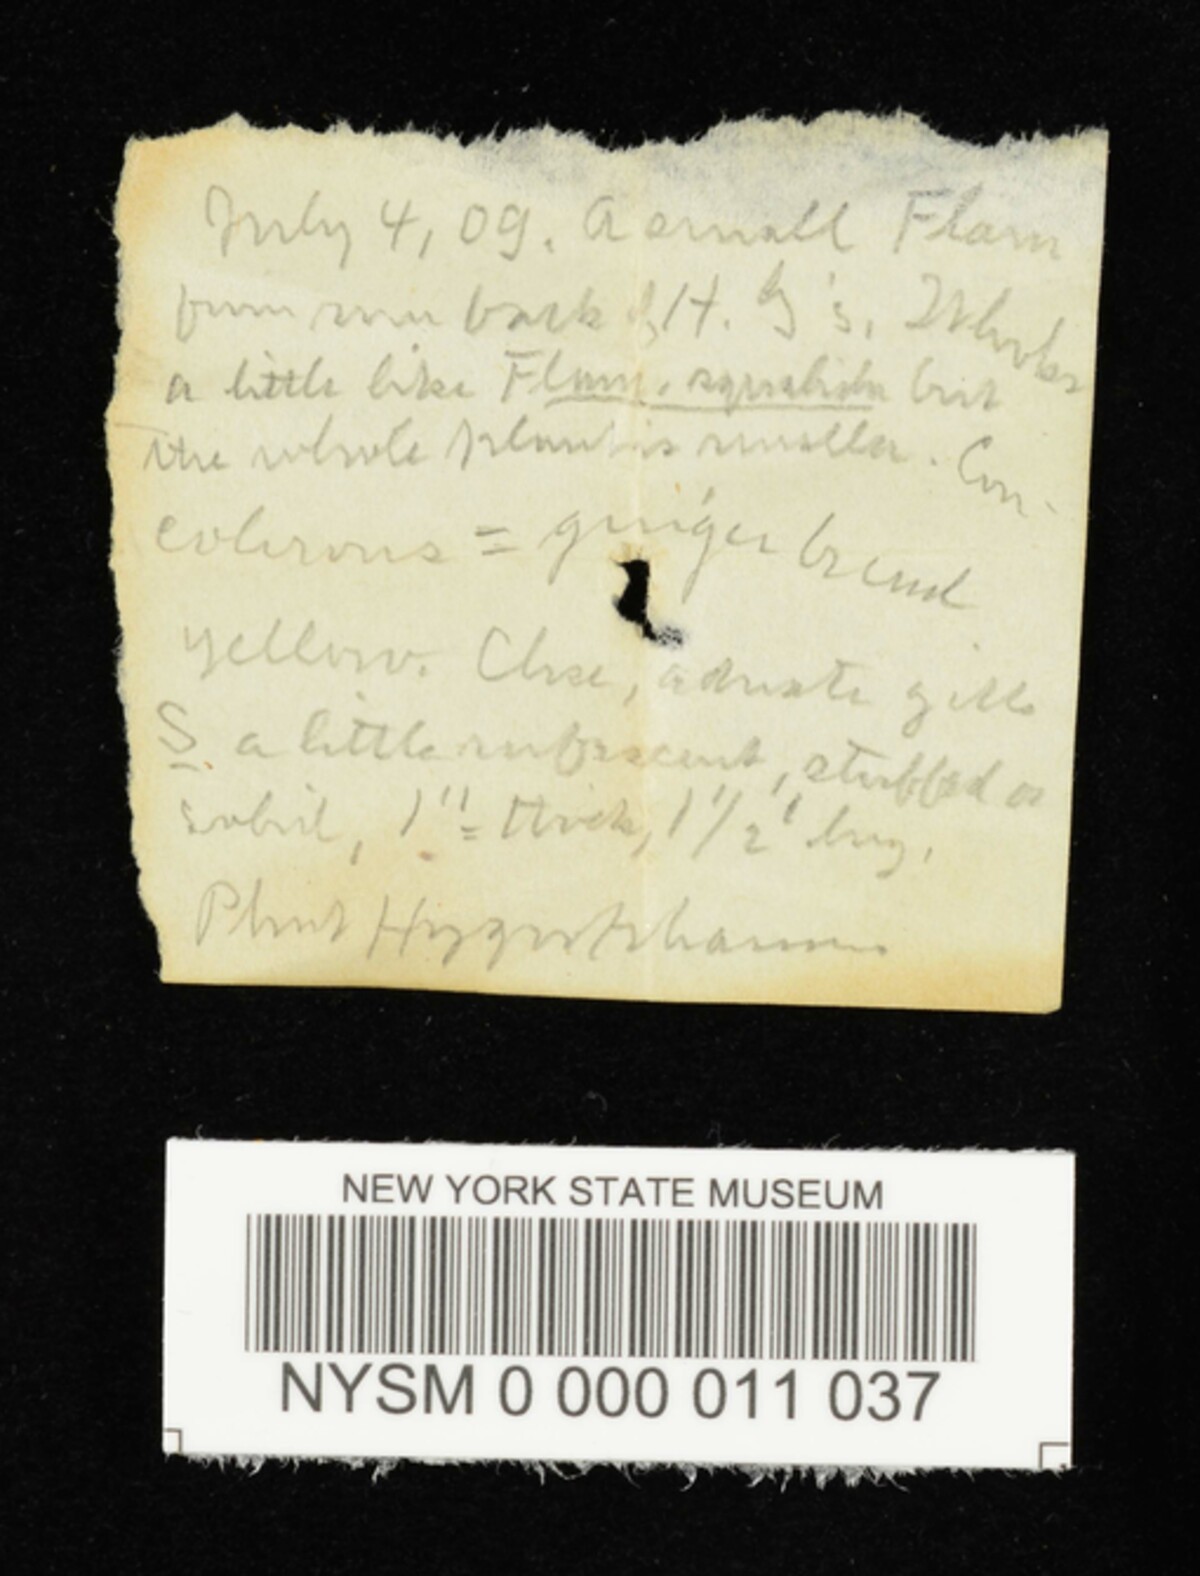 July 4, 09. A small Flam
from run back of H. G's. Looks
a little like Flam. squalida but
the whole plant is smaller. Con-
colorous = ginger bread
yellow. Close, adnate gills
S a little rufescent, stuffed or
solid, 1" thick, 1 1/2' long.
Plant Hygrophanous
NEW YORK STATE MUSEUM
NYSM 0 000 011 037